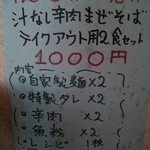 汁なし辛肉まぜそば
テイクアウト用2食セット
1000円
内容
自家製麺×2
特製タレ×2
辛肉×2
魚粉×2
レシピ 1枚